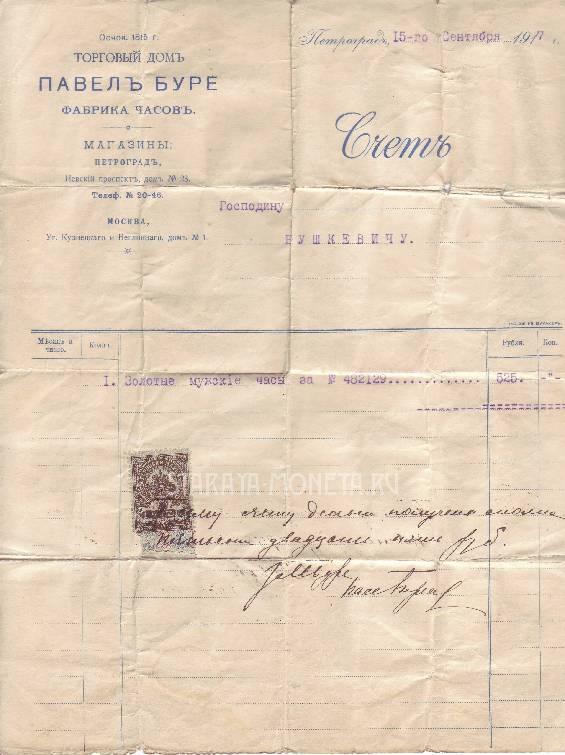 Основ. 1815 г.
ТОРГОВЫЙ ДОМЪ
ПАВЕЛЪ БУРЕ
ФАБРИКА ЧАСОВЪ.
МАГАЗИНЫ:
ПЕТРОГРАДЪ,
Невскій проспектъ, домъ № 23.
Телеф. № 20-46.
МОСКВА,
Уг. Кузнецкаго и Неглиннаго, домъ № 1.
Петроградъ, 15-го Сентября 1917 г.
Счетъ
Господину
БУШКЕВИЧУ.
Мѣсяцъ и число. Колич. Рубли. Коп.
1. Золотые мужскіе часы за № 482129............. 525. -"-
STARAYA-MONETA.RU
счету деньги получены сполна
двадцать пять руб.